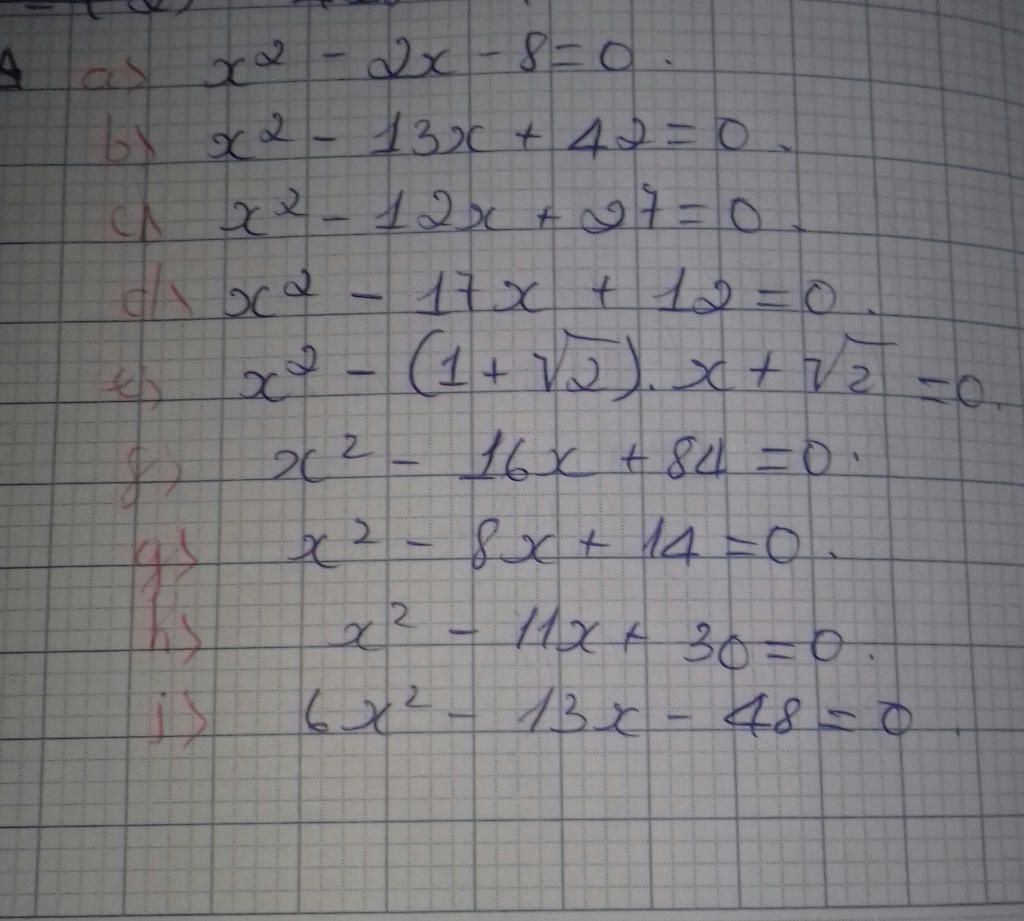 a) x² - 2x - 8 = 0.
b) x² - 13x + 42 = 0.
c) x² - 12x + 27 = 0.
d) x² - 17x + 12 = 0.
e) x² - (1 + √2). x + √2 = 0.
f) x² - 16x + 84 = 0.
g) x² - 8x + 14 = 0.
h) x² - 11x + 30 = 0.
j) 6x² - 13x - 48 = 0.